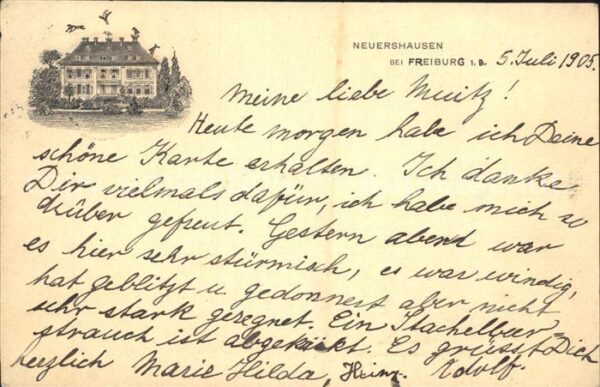 NEUERSHAUSEN
BEI FREIBURG I. B. 5. Juli 1905.
Meine liebe Mutz!
Heute morgen habe ich Deine
schöne Karte erhalten. Ich danke
Dir vielmals dafür, ich habe mich so
drüber gefreut. Gestern abend war
es hier sehr stürmisch, es war windig,
hat geblitzt u. gedonnert aber nicht
sehr stark geregnet. Ein Stachelbeer-
strauch ist abgeknikt. Es grüsst Dich
herzlich Marie Hilda, Heinz. Rdolf.